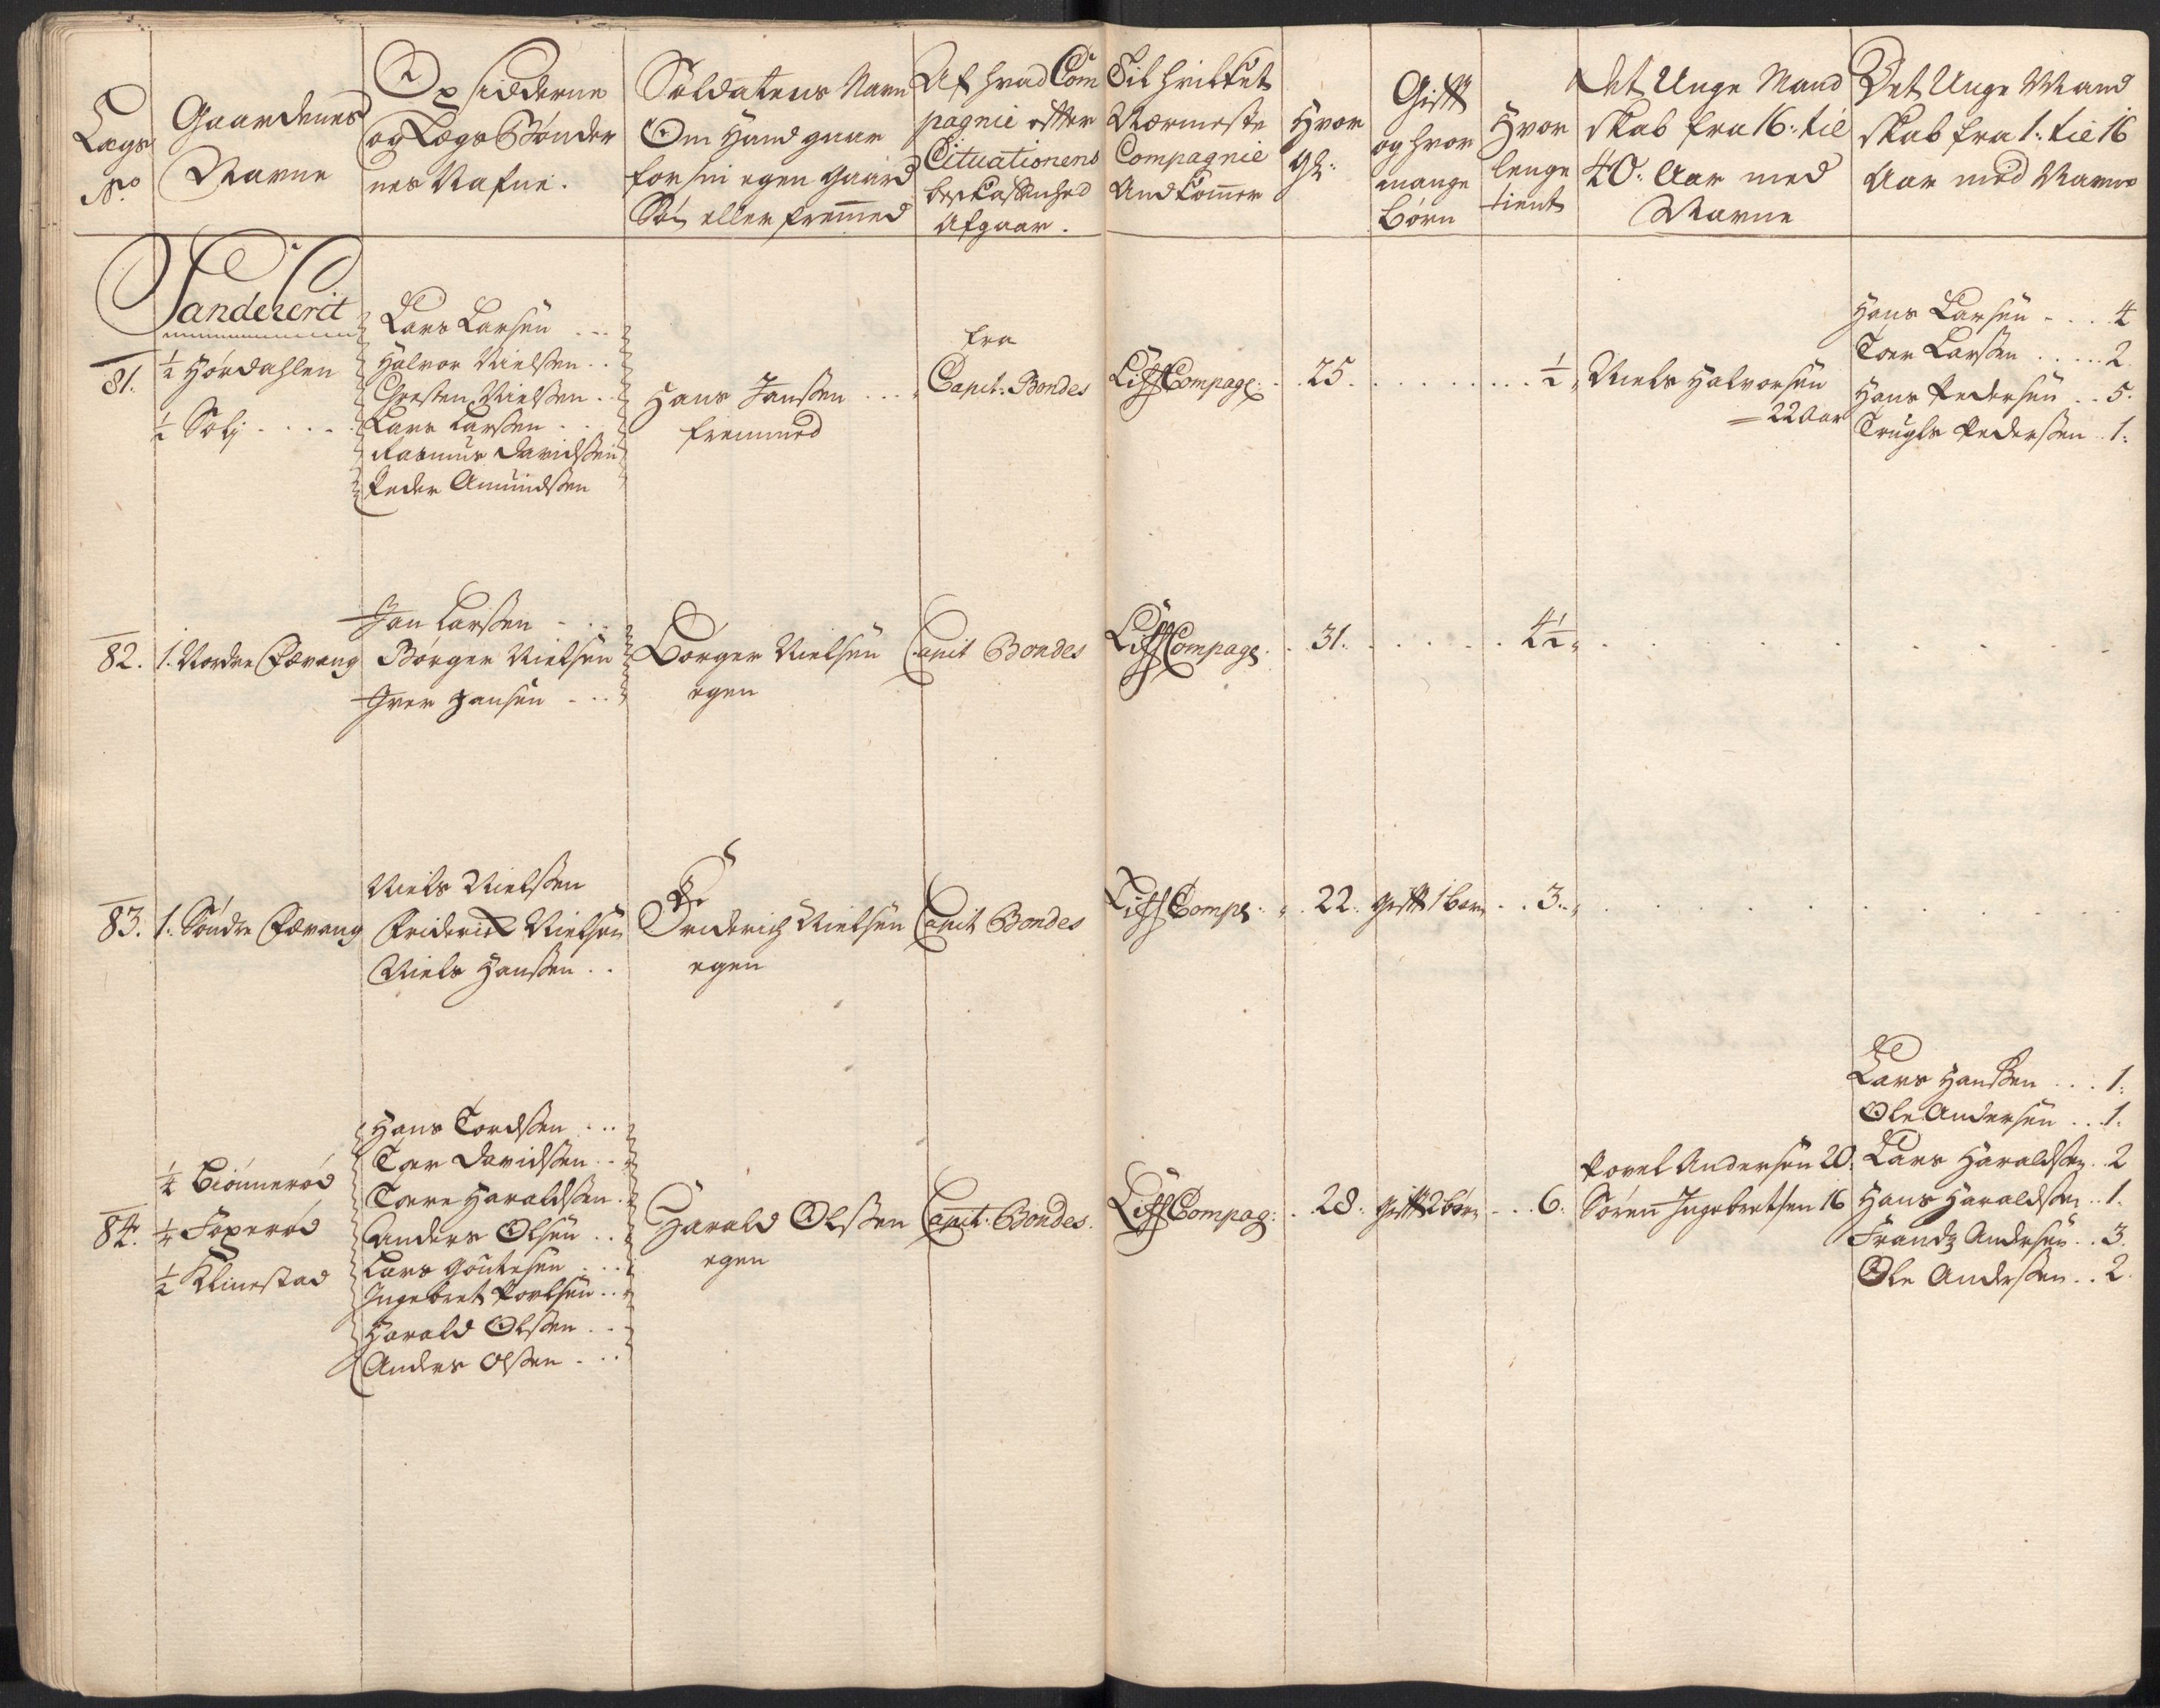 Lægs
No
Gaardenes
Navne
Opsidderne
og Lægs Bønder
nes Nafne.
Soldatens Navn
Om Hand gaar
for sin egen gaard
Søn eller fremmed
Af hvad Com
pagnie efter
Cituationens
beskaffenhed
Afgaar.
Til hvilket
Nærmeste
Compagnie
And komer
Hvor
gl:
Gifft
og hvor
mange
børn
Hvor
lenge
tient
Det Unge Mand
skab fra 16: til
40: Aar med
Navne
Det Unge Mand
skab fra 1: til 16
Aar med Navne
Sandeherrit
81.
½ Hørdahlen
½ Solj
Lars Larsen
Halvor Nielsen
Christen Nielsen
Lars Larsen
Rasmus Davidsen
Peder Amundsen
Hans Jansen
fremmed
fra
Capit: Bondes
Liff Compag:
25.
½
Niels Halvorsen
22 Aar
Hans Larsen 4
Toer Larsen 2.
Hans Pedersen 5.
Trugls Pedersen 1.
82.
1. Nordre Fævang
Jan Larsen
Børger Nielsen
Iver Hansen
Børger Nielsen
egen
Capit Bondes
Liff Compag:
31.
4½
83.
1. Søndre Fævang
Niels Nielsen
Friderich Nielsen
Niels Hansen
Friderich Nielsen
egen
Capit Bondes
Liff Comp:
22. gifft 1 barn 3.
84.
¼ Biønnerød
¼ Foxerød
½ Klinestad
Hans Tordsen
Toer Davidsen
Tore Haraldsen
Anders Olsen
Lars Goutesen
Ingebret Povlsen
Harald Olsen
Anders Olsen
Harald Olsen
egen
Capit: Bondes.
Liff Compag:
28. gifft 2 børn 6.
Povel Andersen 20.
Søren Ingebretsen 16
Lars Hansen 1.
Ole Andersen 1.
Lars Haraldsen 2
Hans Haraldsen 1.
Frandz Andersen 3.
Ole Andersen 2.